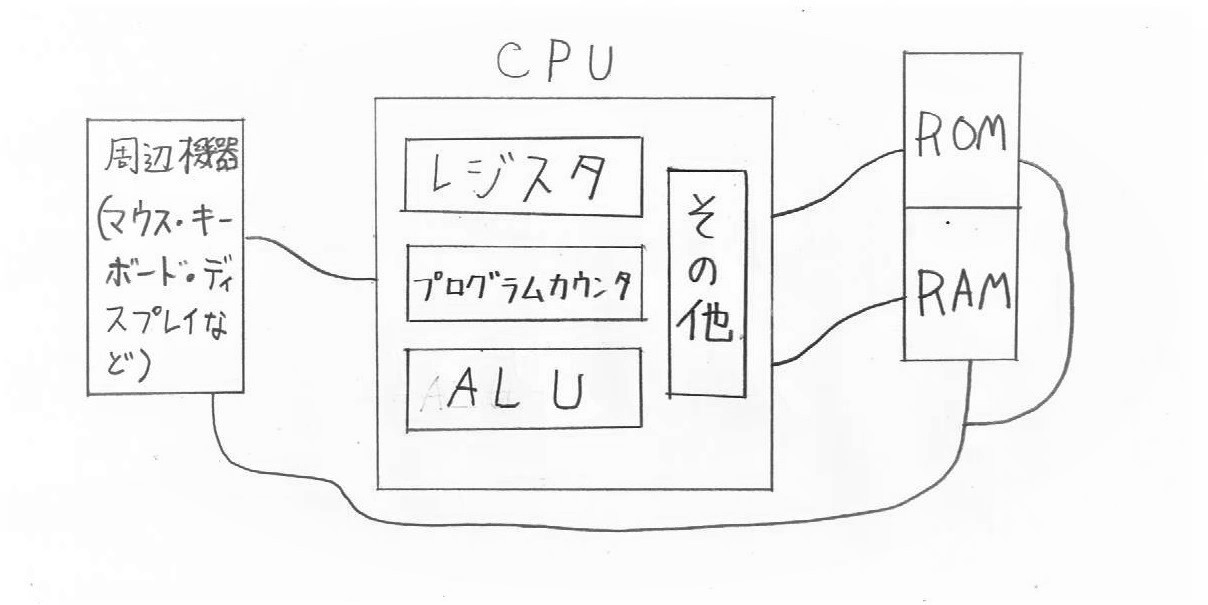 CPU
周辺機器
(マウス・キー
ボード・ディ
スプレイな
ど)
レジスタ
プログラムカウンタ
ALU
その他
ROM
RAM